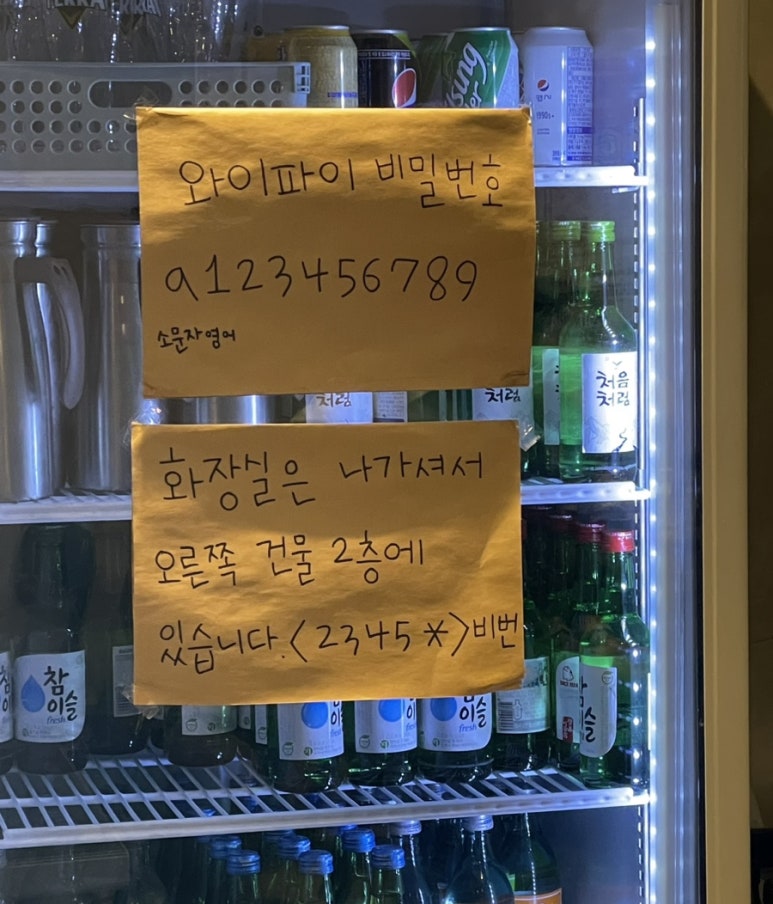 와이파이 비밀번호
a123456789
소문자영어
처음
처럼
처럼
처럼
화장실은 나가셔서
오른쪽 건물 2층에
있습니다.<2345*>비번
참
이슬
fresh
참
이슬
fresh
이슬
fresh
이슬
이슬
fresh